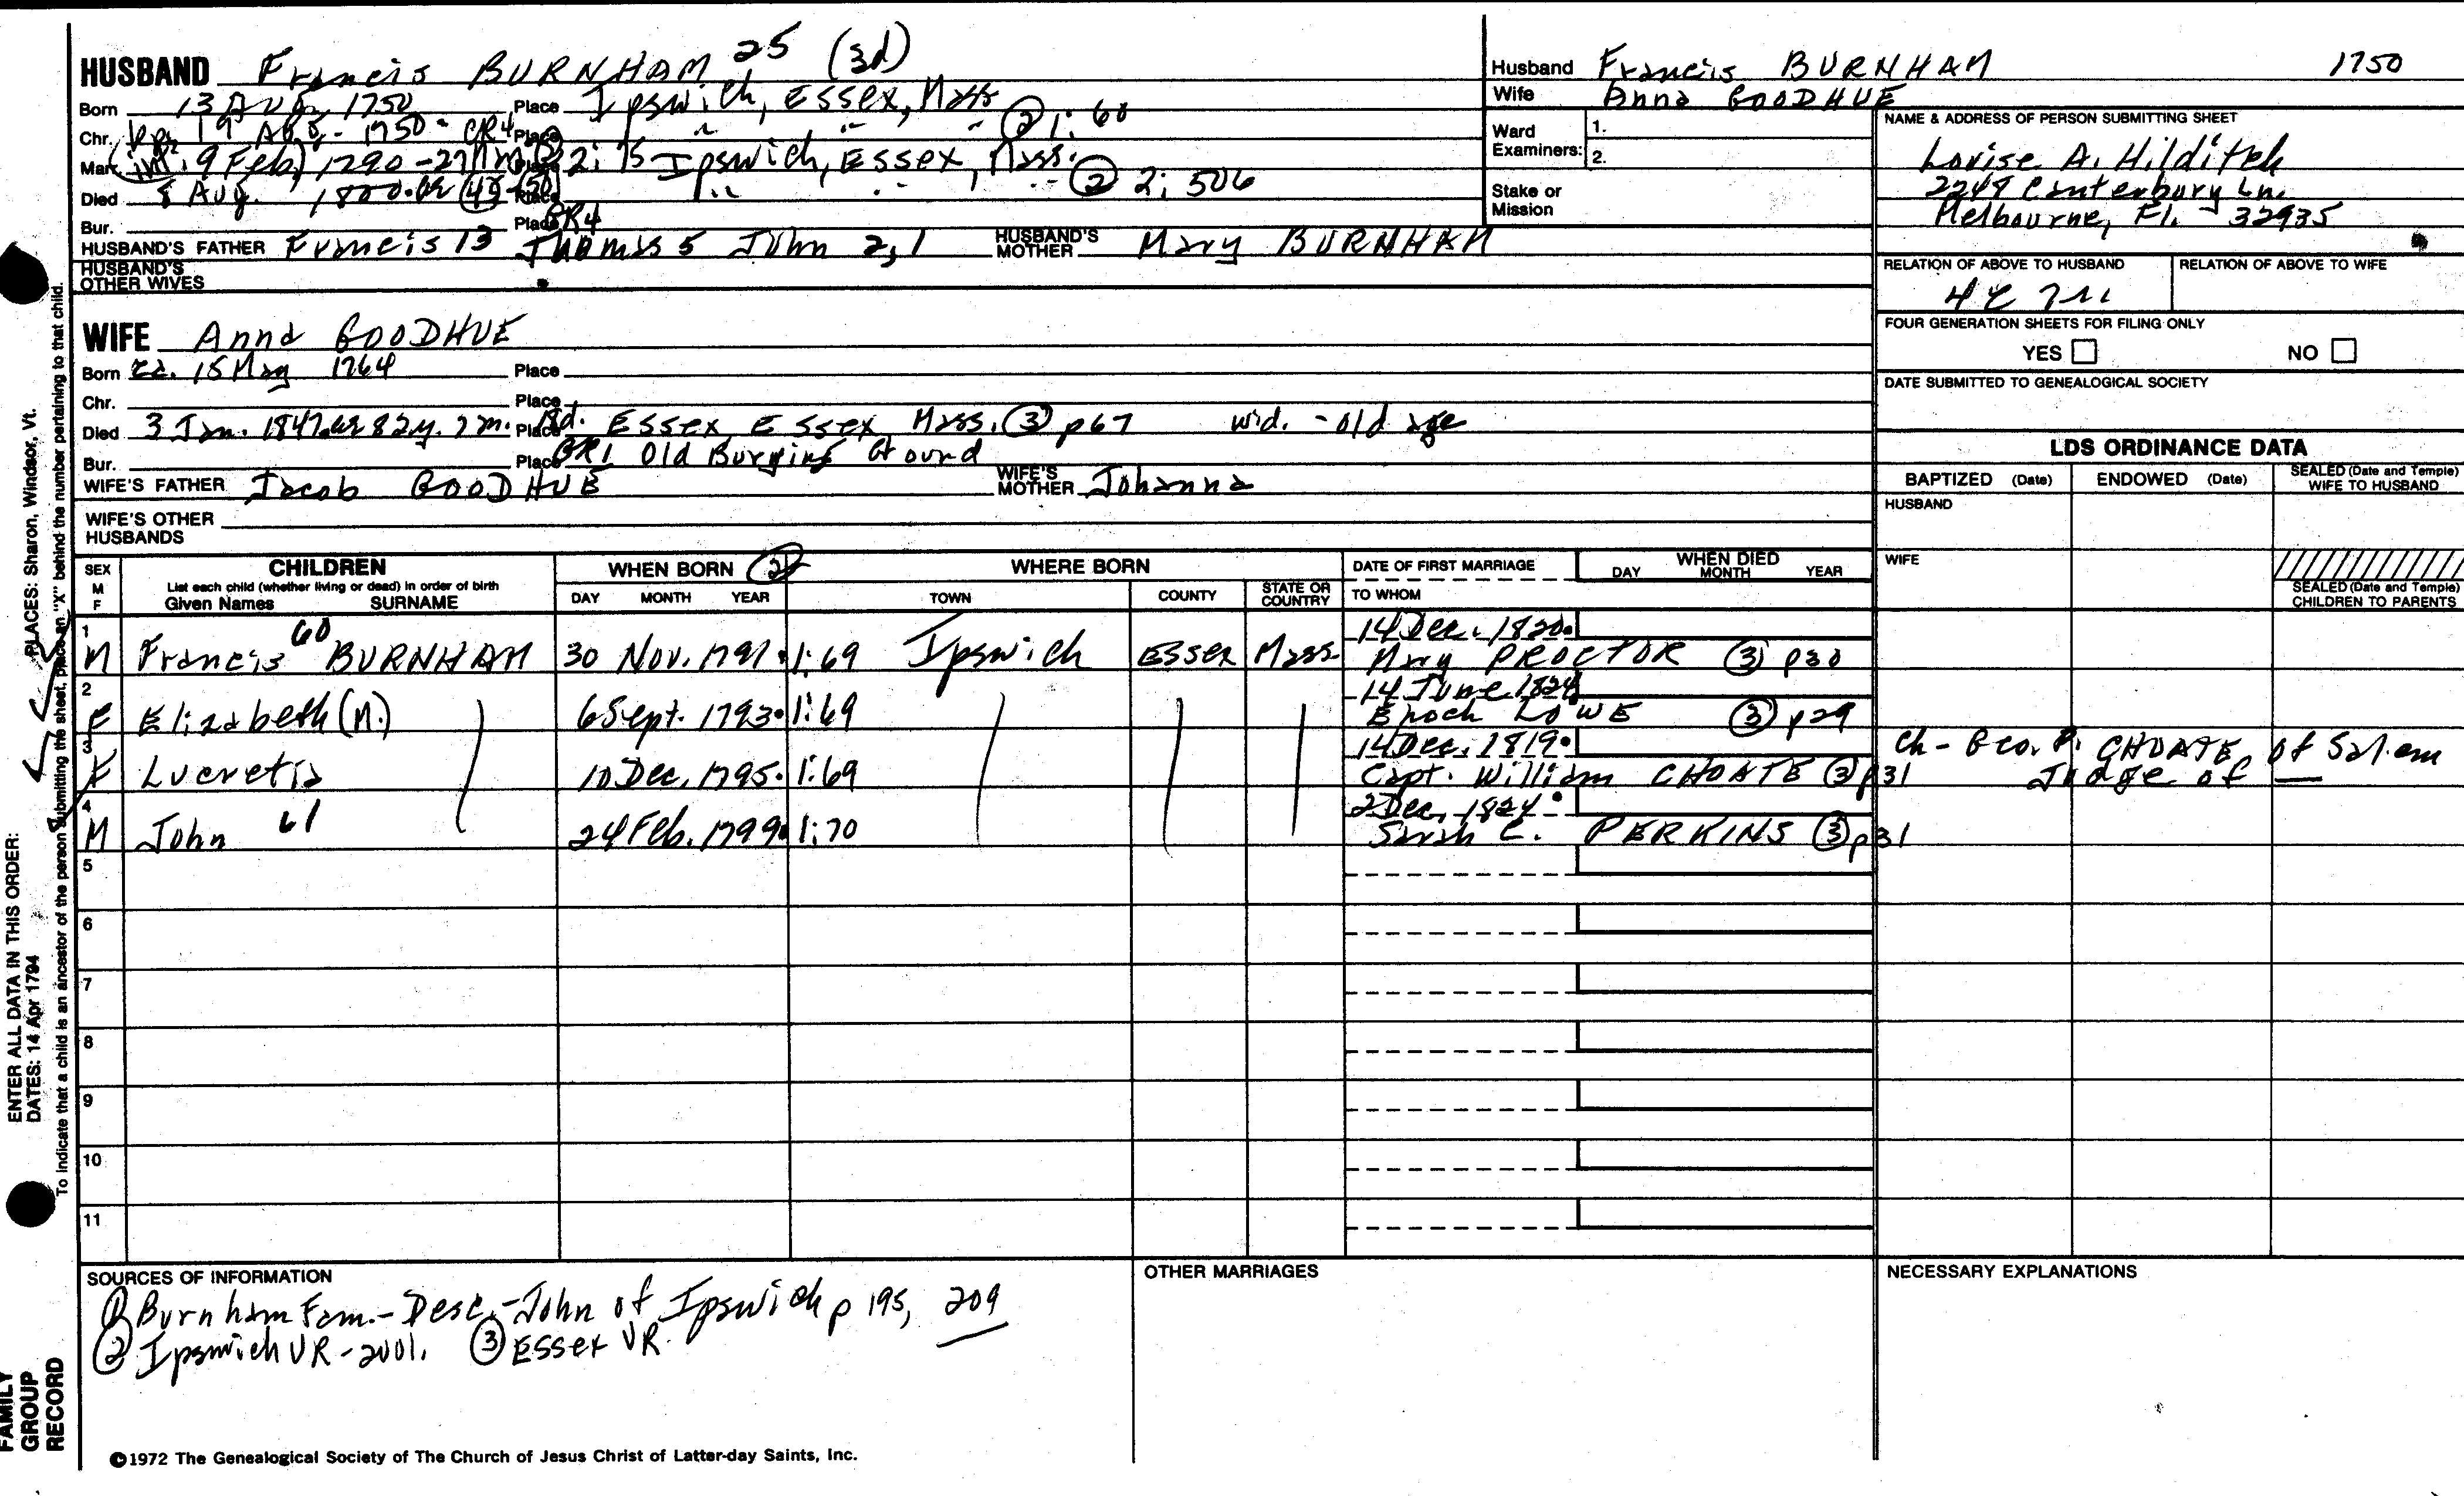 HUSBAND Francis BURNHAM 25 (3d)
Born 13 Aug. 1750 Place Ipswich, Essex, Mass
Chr. bp. 19 Aug. - 1750 - CR4 Place " " " ② 1: 60
Mar. (int. 9 Feb) 1790 - 2: 75 Ipswich, Essex, Mass.
Died 8 Aug. 1800. Place " " " ② 2: 506
Bur. Place GR4
HUSBAND'S FATHER Francis 13 Thomas 5 John 2, 1 HUSBAND'S MOTHER Mary BURNHAM
HUSBAND'S OTHER WIVES
WIFE Anna GOODHUE
Born ca. 15 May 1764 Place
Chr. Place
Died 3 Jan. 1847. ae 82y. 7m. 18d. Place Essex, Essex, Mass. ③ p67 wid. - old age
Bur. Place GR1 Old Burying Ground
WIFE'S FATHER Jacob GOODHUE WIFE'S MOTHER Johanna
WIFE'S OTHER HUSBANDS
Husband Francis BURNHAM 1750
Wife Anna GOODHUE
Ward Examiners: 1.
2.
Stake or Mission
NAME & ADDRESS OF PERSON SUBMITTING SHEET
Louise A. Hilditch
2248 Canterbury Ln.
Melbourne, Fl. 32935
RELATION OF ABOVE TO HUSBAND RELATION OF ABOVE TO WIFE
4C
FOUR GENERATION SHEETS FOR FILING ONLY
YES NO
DATE SUBMITTED TO GENEALOGICAL SOCIETY
LDS ORDINANCE DATA
BAPTIZED (Date) ENDOWED (Date) SEALED (Date and Temple) WIFE TO HUSBAND
HUSBAND
WIFE
SEALED (Date and Temple) CHILDREN TO PARENTS
SEX M F CHILDREN WHEN BORN ② WHERE BORN DATE OF FIRST MARRIAGE WHEN DIED
List each child (whether living or dead) in order of birth
Given Names SURNAME DAY MONTH YEAR TOWN COUNTY STATE OR COUNTRY TO WHOM DAY MONTH YEAR
1 M Francis 60 BURNHAM 30 Nov. 1791. 1:69 Ipswich Essex Mass. 14 Dec. 1820.
Mary PROCTOR ③ p30
2 F Elizabeth (M.) 6 Sept. 1793. 1:69 14 June 1824
Enoch LOWE ③ p29
3 F Lucretia 10 Dec. 1795. 1:69 14 Dec. 1819.
Capt. William CHOATE ③ p31
Ch - Geo. F. CHOATE, of Salem
Judge of —
4 M John 61 24 Feb. 1799. 1:70 2 Dec. 1824.
Sarah C. PERKINS ③ p31
5
6
7
8
9
10
11
SOURCES OF INFORMATION OTHER MARRIAGES NECESSARY EXPLANATIONS
① Burnham Fam. - Desc. - John of Ipswich p 195, 209
② Ipswich VR - 2001. ③ Essex VR.
©1972 The Genealogical Society of The Church of Jesus Christ of Latter-day Saints, Inc.
FAMILY GROUP RECORD
ENTER ALL DATA IN THIS ORDER:
DATES: 14 Apr 1794
PLACES: Sharon, Windsor, Vt.
To indicate that a child is an ancestor of the person submitting the sheet, place an "X" behind the number pertaining to that child.